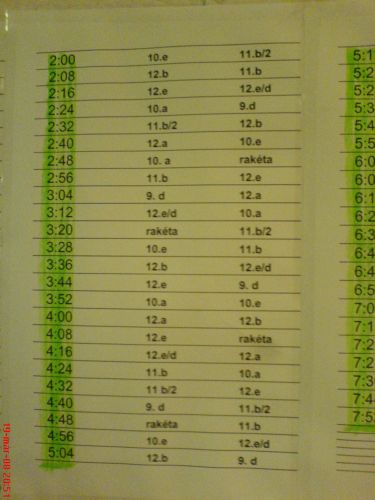 2:00 10.e 11.b/2
2:08 12.b 11.b
2:16 12.e 12.e/d
2:24 10.a 9.d
2:32 11.b/2 12.b
2:40 12.a 10.e
2:48 10. a rakéta
2:56 11.b 12.e
3:04 9. d 12.a
3:12 12.e/d 10.a
3:20 rakéta 11.b/2
3:28 10.e 11.b
3:36 12.b 12.e/d
3:44 12.e 9. d
3:52 10.a 10.e
4:00 12.a 12.b
4:08 12.e rakéta
4:16 12.e/d 12.a
4:24 11.b 10.a
4:32 11 b/2 12.e
4:40 9. d 11.b/2
4:48 rakéta 11.b
4:56 10.e 12.e/d
5:04 12.b 9. d
5:1
5:2
5:2
5:3
5:4
5:5
6:0
6:0
6:1
6:2
6:3
6:4
6:4
6:5
7:0
7:1
7:2
7:2
7:3
7:4
7:5
19-mar-08 20:51